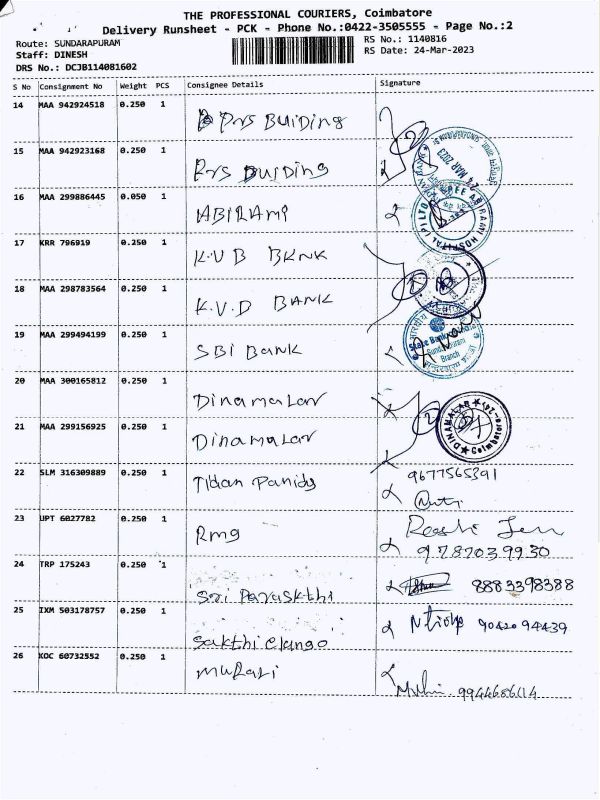 THE PROFESSIONAL COURIERS, Coimbatore
Delivery Runsheet - PCK - Phone No.:0422-3505555 - Page No.:2
Route: SUNDARAPURAM
RS No.: 1140816
Staff: DINESH
RS Date: 24-Mar-2023
DRS No.: DCJB114081602
S No Consignment No Weight PCS Consignee Details Signature
14 MAA 942924518 0.250 1 Prs Building
15 MAA 942923168 0.250 1 Building
24 MAR 2023
16 MAA 299886445 0.050 1 ABIRAMI
HOSPITAL
17 KRR 796919 0.250 1 K.V.B BANK
18 MAA 298783564 0.250 1 K.V.B BANK
19 MAA 299494199 0.250 1 SBI BANK
State Bank
Sundarapuram
Branch
20 MAA 300165812 0.250 1 Dinamalar
21 MAA 299156925 0.250 1 Dinamalar
DINAMALAR Coimbatore-24
22 SLM 316309889 0.250 1 9677565391
23 UPT 6027782 0.250 1 Rmg
9787039930
24 TRP 175243 0.250 1 Sri Parasakthi 8883398388
25 IXM 503178757 0.250 1 Sakthi elango 9042094439
26 KOC 60732552 0.250 1 Murali